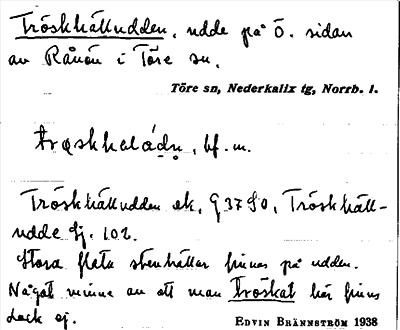 Tröskhälludden, udde på Ö. sidan
av Rånön i Töre sn.
Töre sn, Nederkalix tg, Norrb. l.
bf. m.
Tröskhälludden ek. G 3790, Tröskhäll-
udde Sj. 102.
Stora flata stenhällar finnas på udden.
Något minne av att man tröskat här finns
dock ej.
EDVIN BRÄNNSTRÖM 1938